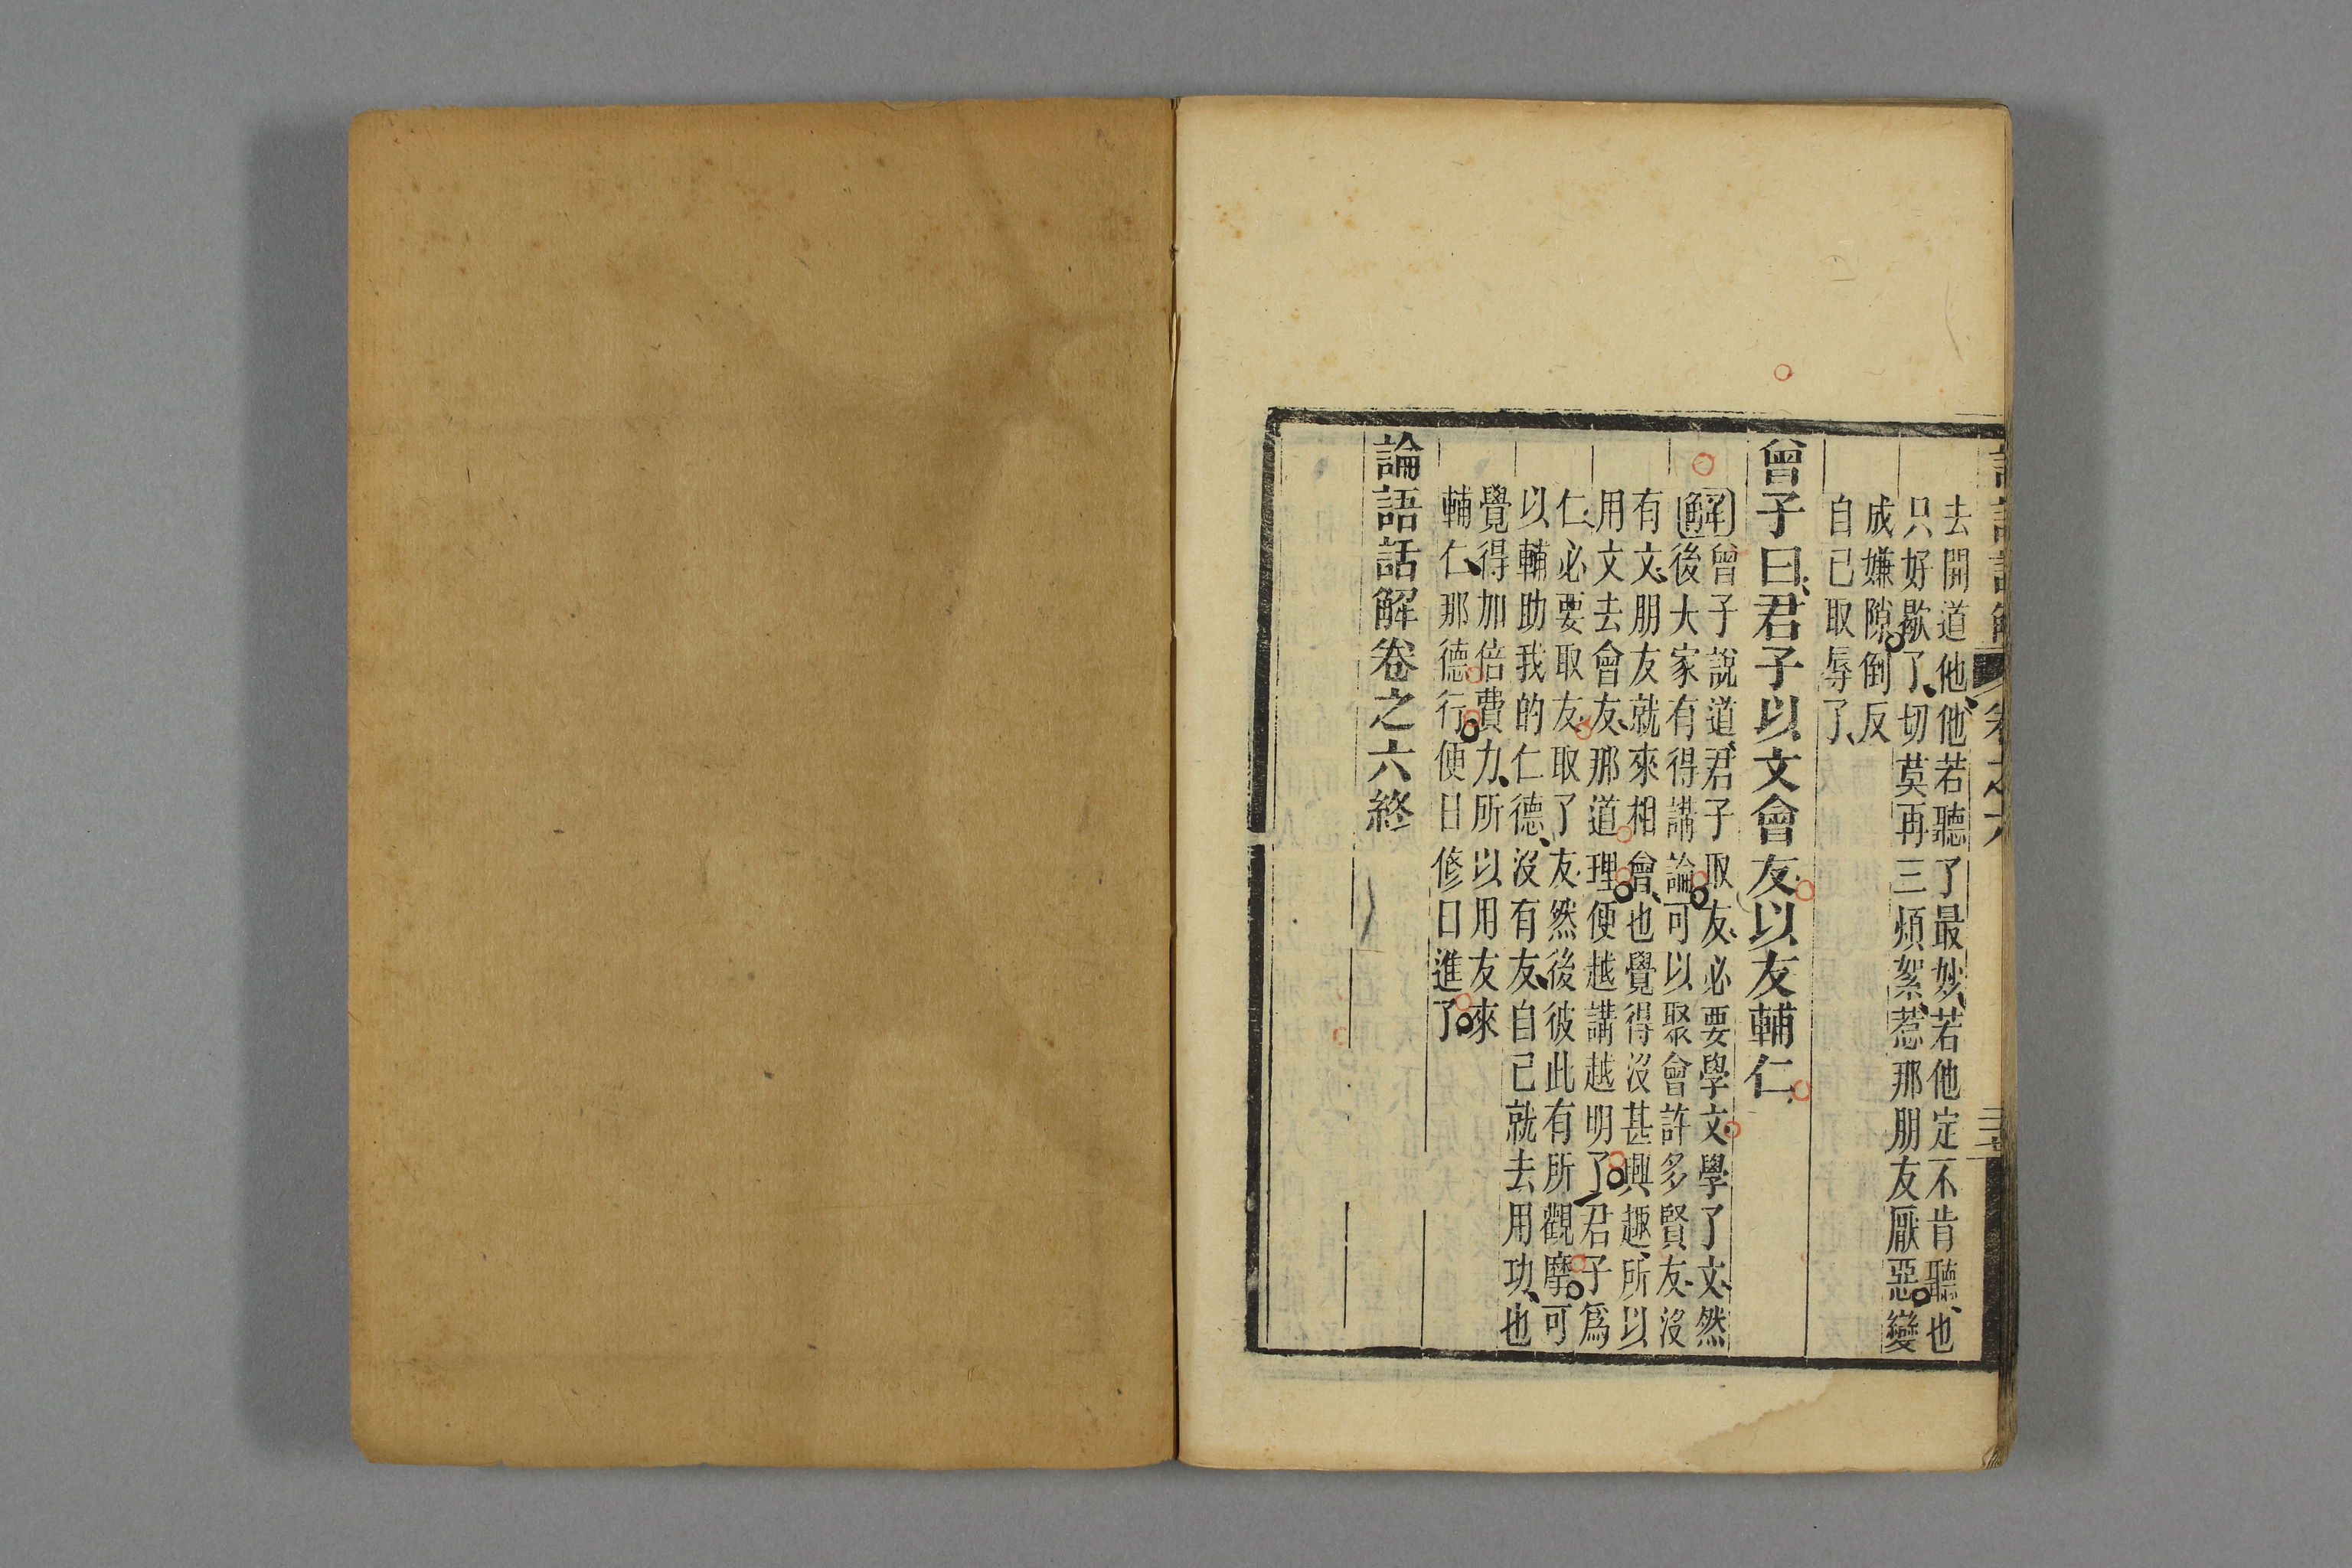 去開道他、他若聽了最妙、若他定不肯聽、也
只好歇了、切莫再三煩絮、惹那朋友厭惡變
成嫌隙倒反
自己取辱了、
曾子曰、君子以文會友以友輔仁
解曾子說道、君子取友、必要學文學了文、然
後大家有得講論可以聚會許多賢友、沒
有文、朋友就來相會、也覺得沒甚興趣、所以
用文去會友、那道理便越講越明了君子爲
仁、必要取友、取了友、然後彼此有所觀摩可
以輔助我的仁德、沒有友、自己就去用功、也
覺得加倍費力、所以用友來
輔仁、那德行便日修日進了
論語話解卷之六終